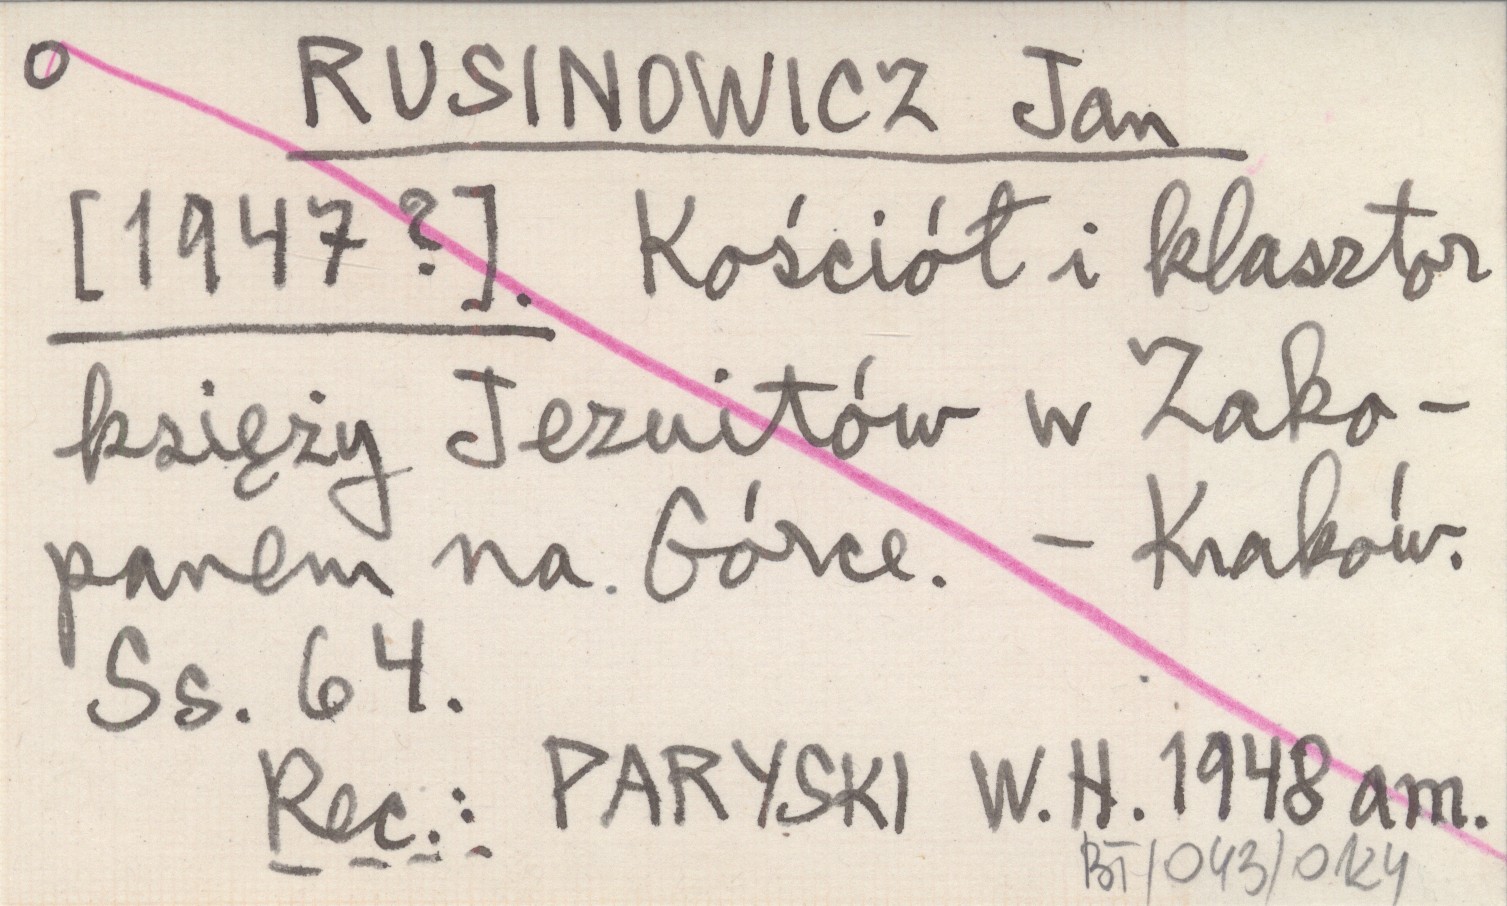 RUSINOWICZ Jan
[1947?]. Kościół i klasztor
księży Jezuitów w Zako-
panem na. Górce. - Kraków.
Ss. 64.
Rec.: PARYSKI W.H. 1948 am.
BT/043/0124